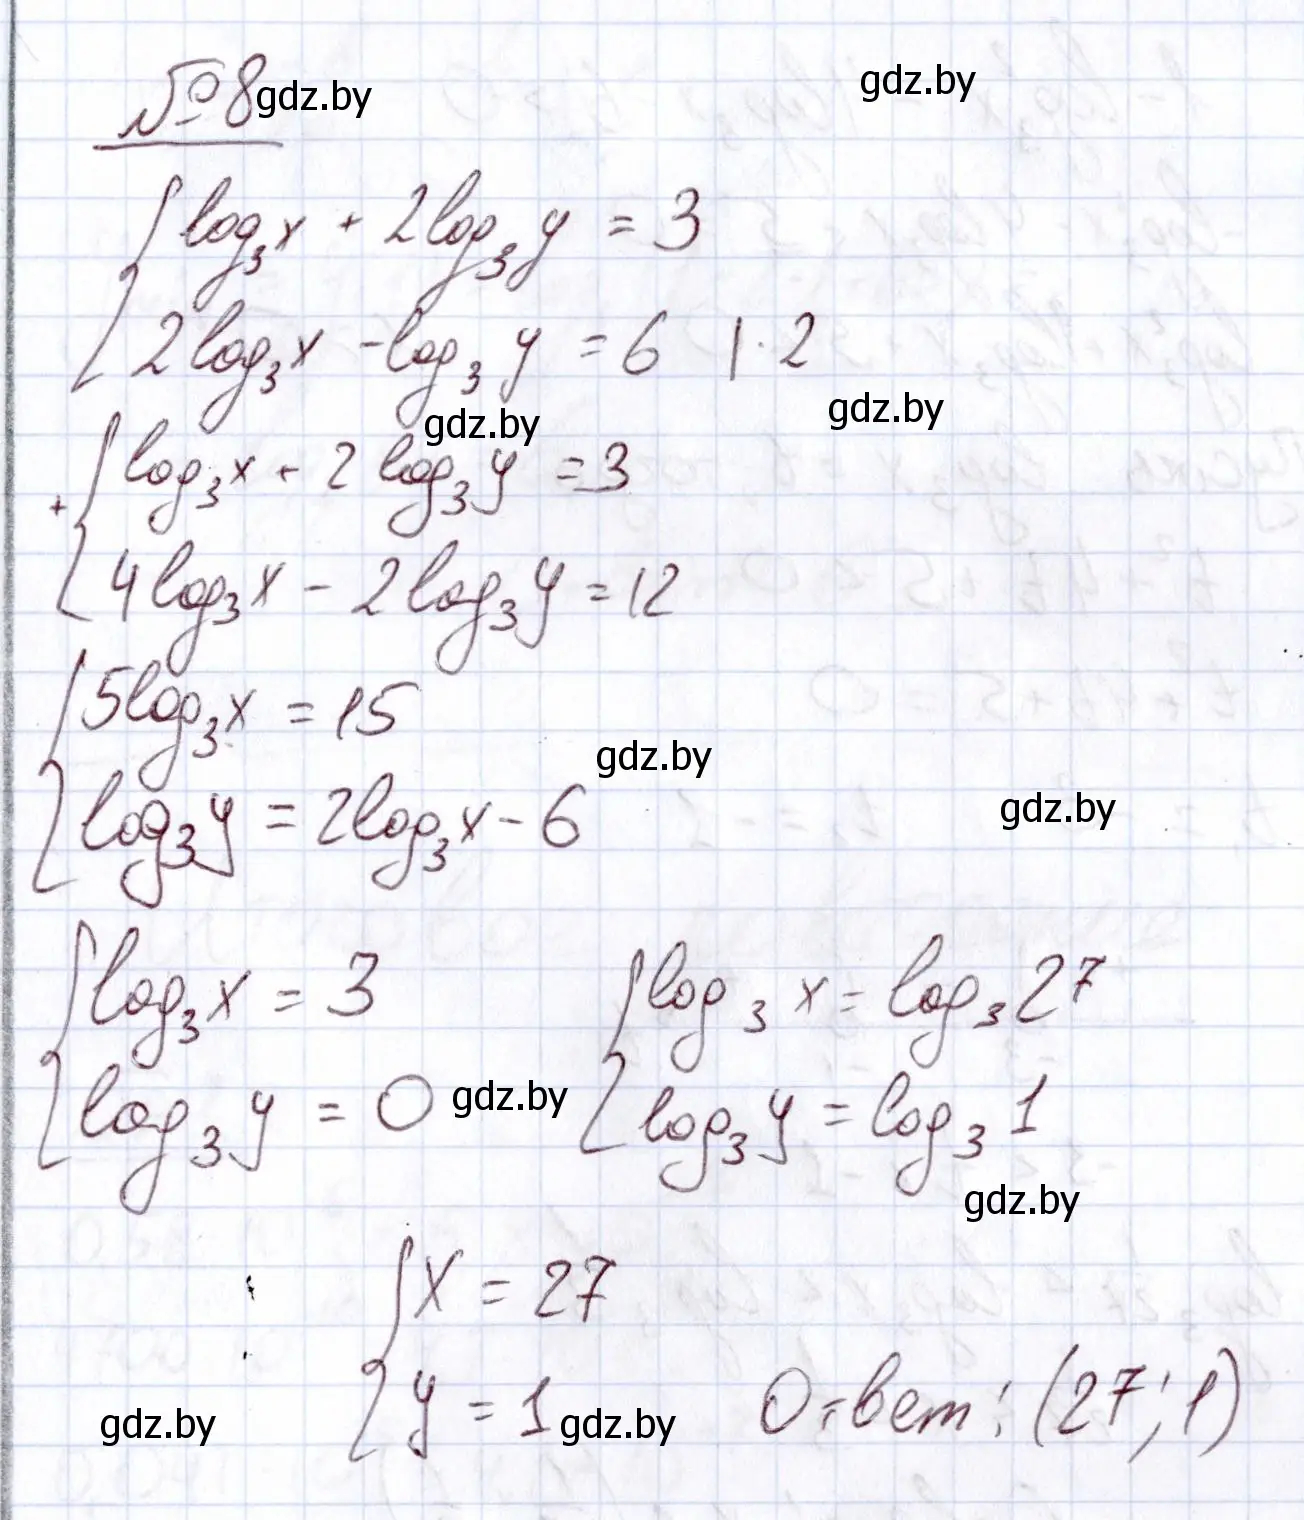 №8 gdz.by gdz.by
log₃x + 2log₃y = 3
2log₃x - log₃y = 6 |·2
gdz.by gdz.by
log₃x + 2log₃y = 3
+
4log₃x - 2log₃y = 12
5log₃x = 15
gdz.by
log₃y = 2log₃x - 6
gdz.by
log₃x = 3 log₃x = log₃27
log₃y = 0 gdz.by log₃y = log₃1
gdz.by
x = 27
y = 1 Ответ: (27; 1)
gdz.by gdz.by